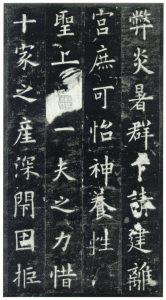 弊炎暑群下請建離
宮庶可怡神養性
聖上一夫之力惜
十家之產深閇固拒